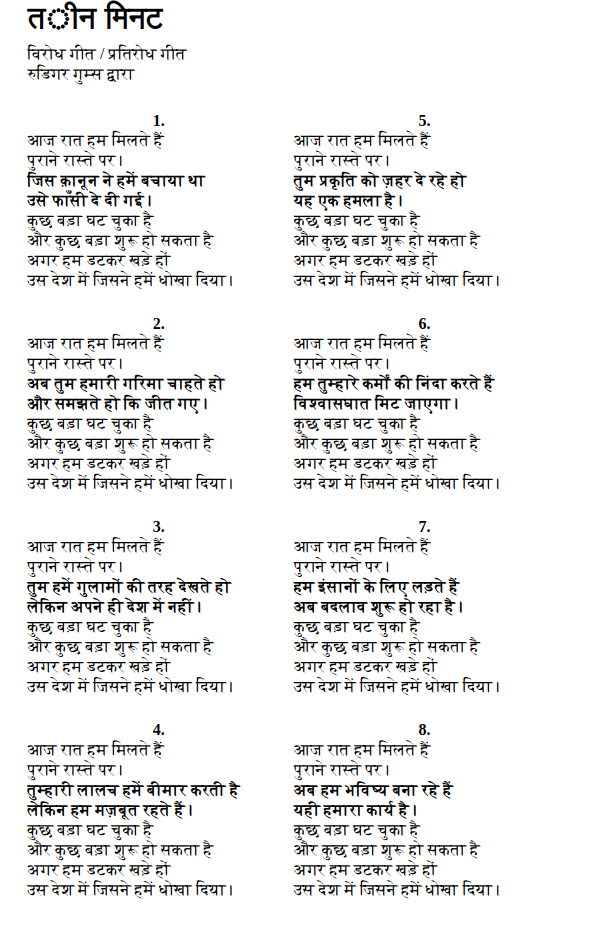 तीन मिनट
विरोध गीत / प्रतिरोध गीत
रुडिगर गुम्स द्वारा
1.
आज रात हम मिलते हैं
पुराने रास्ते पर।
जिस क़ानून ने हमें बचाया था
उसे फाँसी दे दी गई।
कुछ बड़ा घट चुका है
और कुछ बड़ा शुरू हो सकता है
अगर हम डटकर खड़े हों
उस देश में जिसने हमें धोखा दिया।
2.
आज रात हम मिलते हैं
पुराने रास्ते पर।
अब तुम हमारी गरिमा चाहते हो
और समझते हो कि जीत गए।
कुछ बड़ा घट चुका है
और कुछ बड़ा शुरू हो सकता है
अगर हम डटकर खड़े हों
उस देश में जिसने हमें धोखा दिया।
3.
आज रात हम मिलते हैं
पुराने रास्ते पर।
तुम हमें गुलामों की तरह देखते हो
लेकिन अपने ही देश में नहीं।
कुछ बड़ा घट चुका है
और कुछ बड़ा शुरू हो सकता है
अगर हम डटकर खड़े हों
उस देश में जिसने हमें धोखा दिया।
4.
आज रात हम मिलते हैं
पुराने रास्ते पर।
तुम्हारी लालच हमें बीमार करती है
लेकिन हम मज़बूत रहते हैं।
कुछ बड़ा घट चुका है
और कुछ बड़ा शुरू हो सकता है
अगर हम डटकर खड़े हों
उस देश में जिसने हमें धोखा दिया।
5.
आज रात हम मिलते हैं
पुराने रास्ते पर।
तुम प्रकृति को ज़हर दे रहे हो
यह एक हमला है।
कुछ बड़ा घट चुका है
और कुछ बड़ा शुरू हो सकता है
अगर हम डटकर खड़े हों
उस देश में जिसने हमें धोखा दिया।
6.
आज रात हम मिलते हैं
पुराने रास्ते पर।
हम तुम्हारे कर्मों की निंदा करते हैं
विश्वासघात मिट जाएगा।
कुछ बड़ा घट चुका है
और कुछ बड़ा शुरू हो सकता है
अगर हम डटकर खड़े हों
उस देश में जिसने हमें धोखा दिया।
7.
आज रात हम मिलते हैं
पुराने रास्ते पर।
हम इंसानों के लिए लड़ते हैं
अब बदलाव शुरू हो रहा है।
कुछ बड़ा घट चुका है
और कुछ बड़ा शुरू हो सकता है
अगर हम डटकर खड़े हों
उस देश में जिसने हमें धोखा दिया।
8.
आज रात हम मिलते हैं
पुराने रास्ते पर।
अब हम भविष्य बना रहे हैं
यही हमारा कार्य है।
कुछ बड़ा घट चुका है
और कुछ बड़ा शुरू हो सकता है
अगर हम डटकर खड़े हों
उस देश में जिसने हमें धोखा दिया।